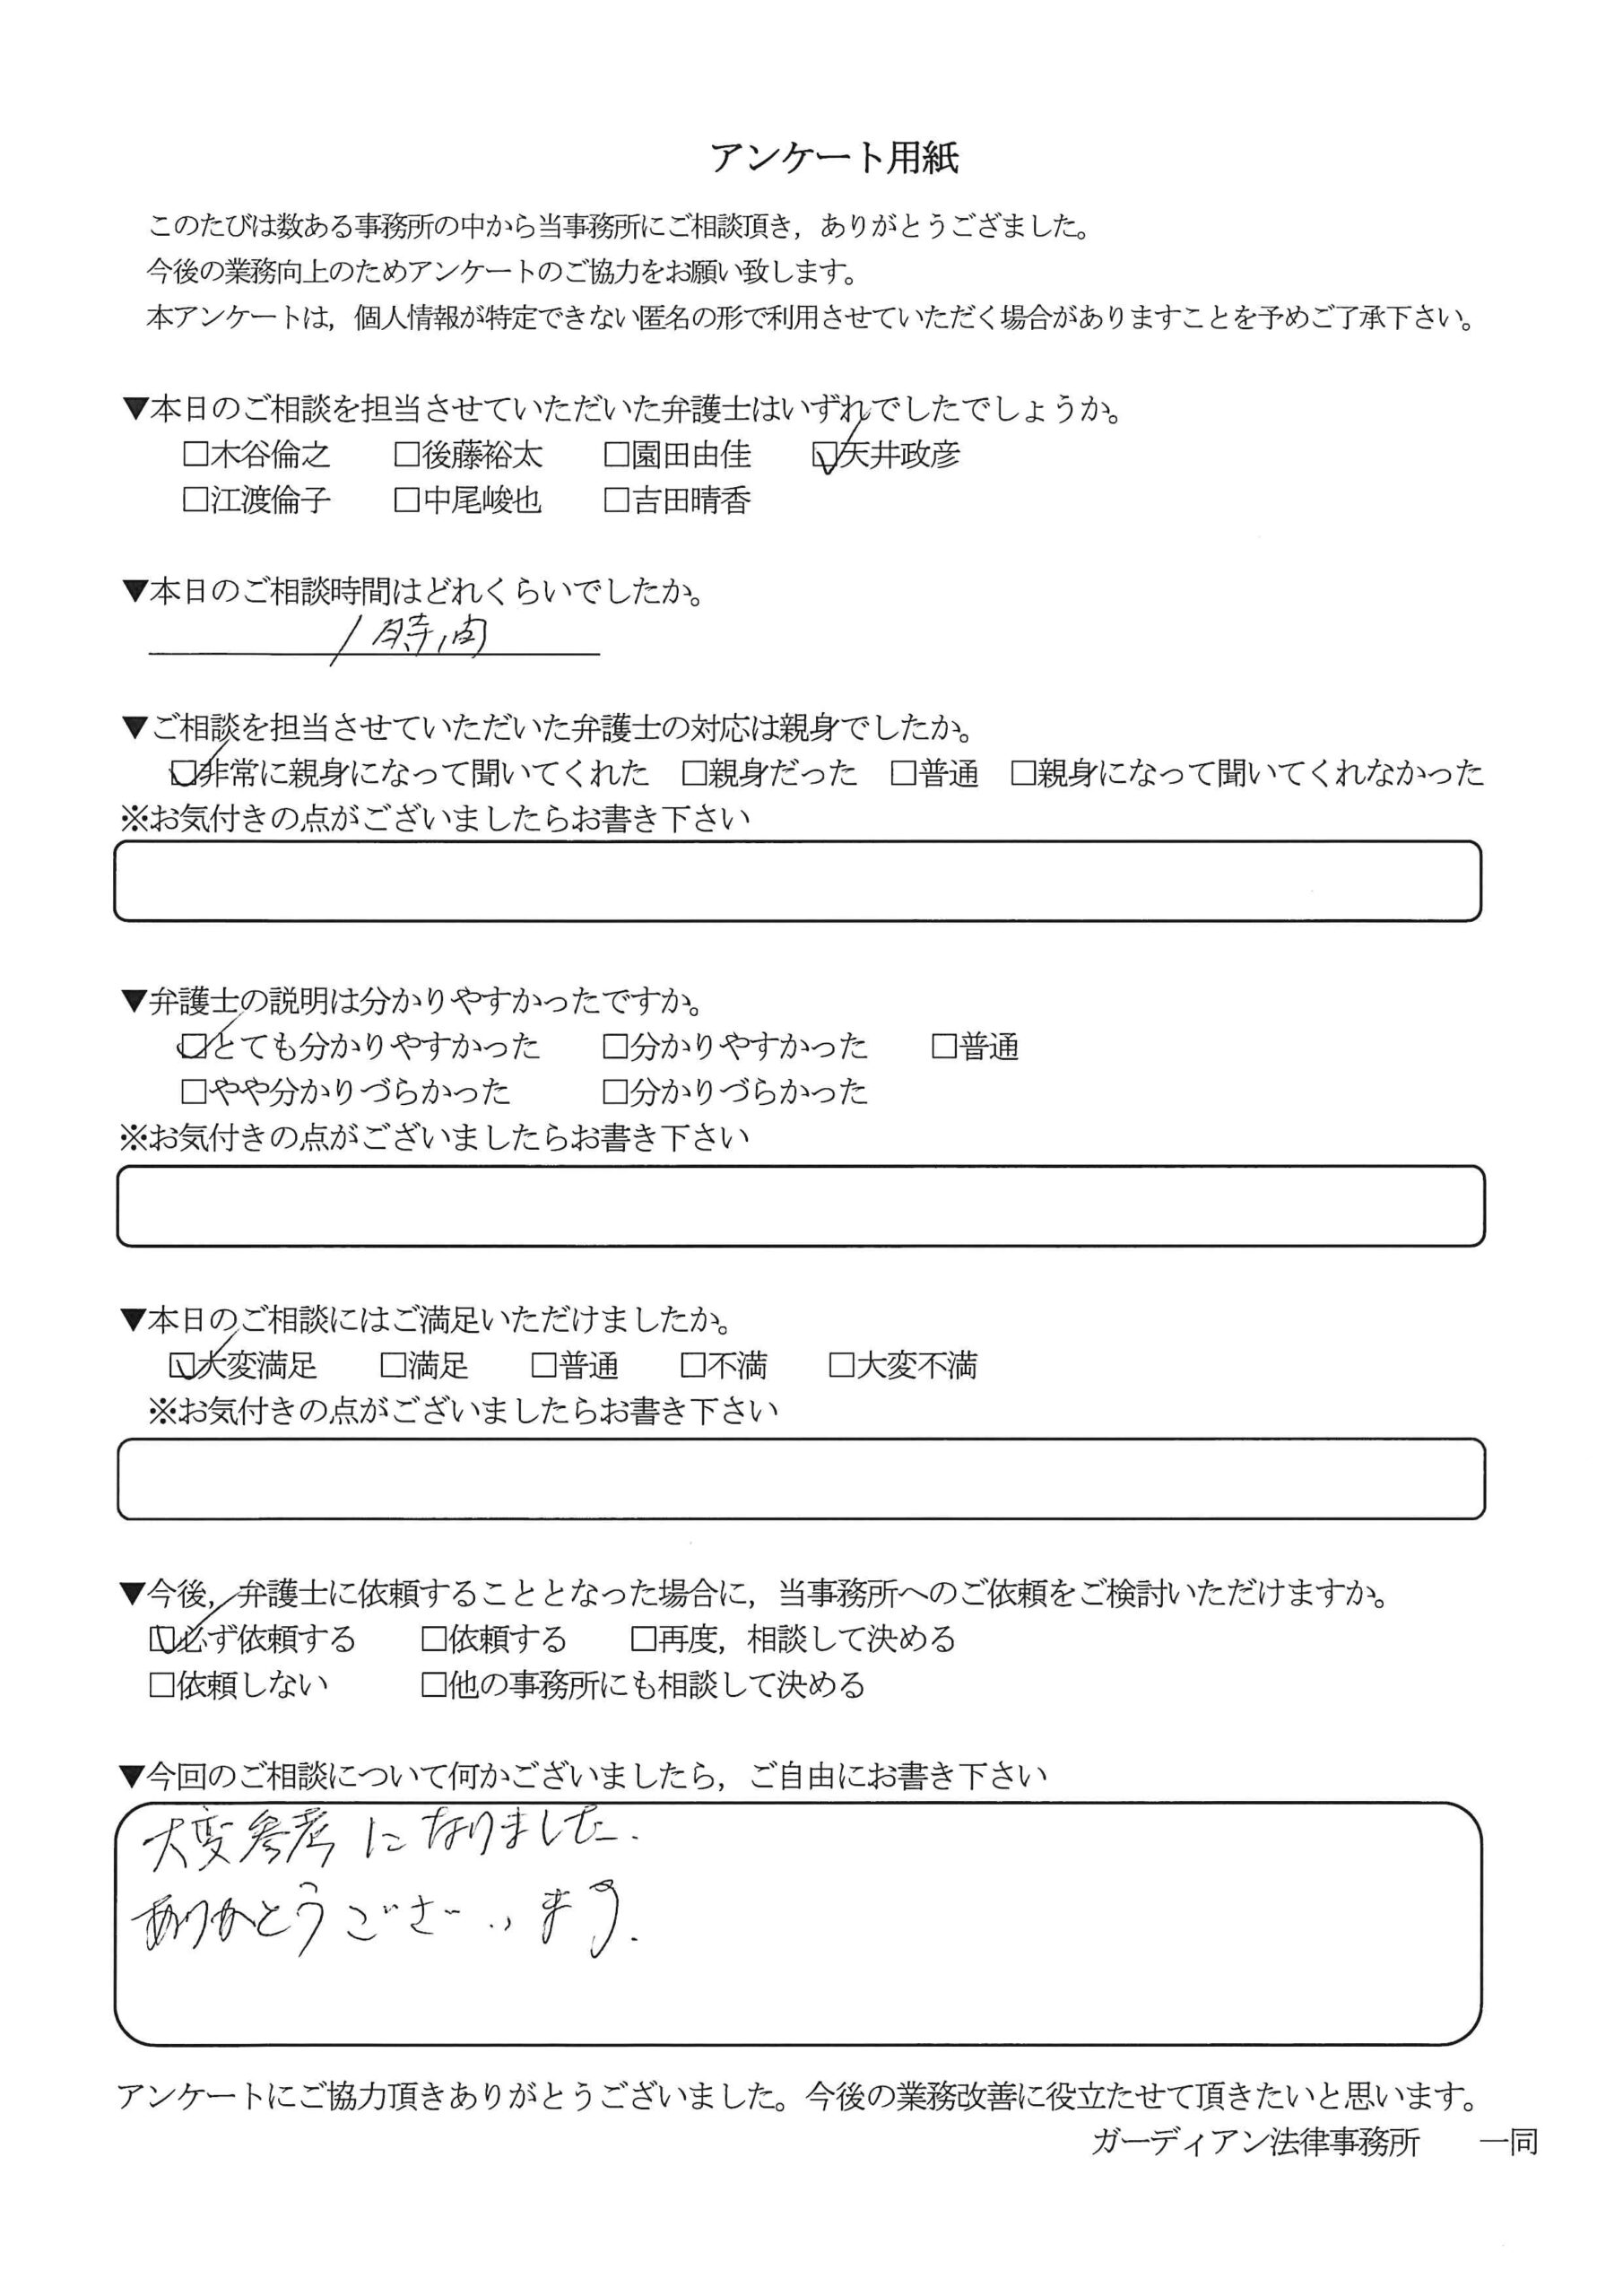 アンケート用紙
このたびは数ある事務所の中から当事務所にご相談頂き，ありがとうござました。
今後の業務向上のためアンケートのご協力をお願い致します。
本アンケートは，個人情報が特定できない匿名の形で利用させていただく場合がありますことを予めご了承下さい。
▼本日のご相談を担当させていただいた弁護士はいずれでしたでしょうか。
□木谷倫之　□後藤裕太　□園田由佳　☑天井政彦
□江渡倫子　□中尾峻也　□吉田晴香
▼本日のご相談時間はどれくらいでしたか。
1時間
▼ご相談を担当させていただいた弁護士の対応は親身でしたか。
☑非常に親身になって聞いてくれた　□親身だった　□普通　□親身になって聞いてくれなかった
※お気付きの点がございましたらお書き下さい
▼弁護士の説明は分かりやすかったですか。
☑とても分かりやすかった　□分かりやすかった　□普通
□やや分かりづらかった　□分かりづらかった
※お気付きの点がございましたらお書き下さい
▼本日のご相談にはご満足いただけましたか。
☑大変満足　□満足　□普通　□不満　□大変不満
※お気付きの点がございましたらお書き下さい
▼今後，弁護士に依頼することとなった場合に，当事務所へのご依頼をご検討いただけますか。
☑必ず依頼する　□依頼する　□再度，相談して決める
□依頼しない　□他の事務所にも相談して決める
▼今回のご相談について何かございましたら，ご自由にお書き下さい
大変参考になりました.
ありがとうございます.
アンケートにご協力頂きありがとうございました。今後の業務改善に役立たせて頂きたいと思います。
ガーディアン法律事務所　一同